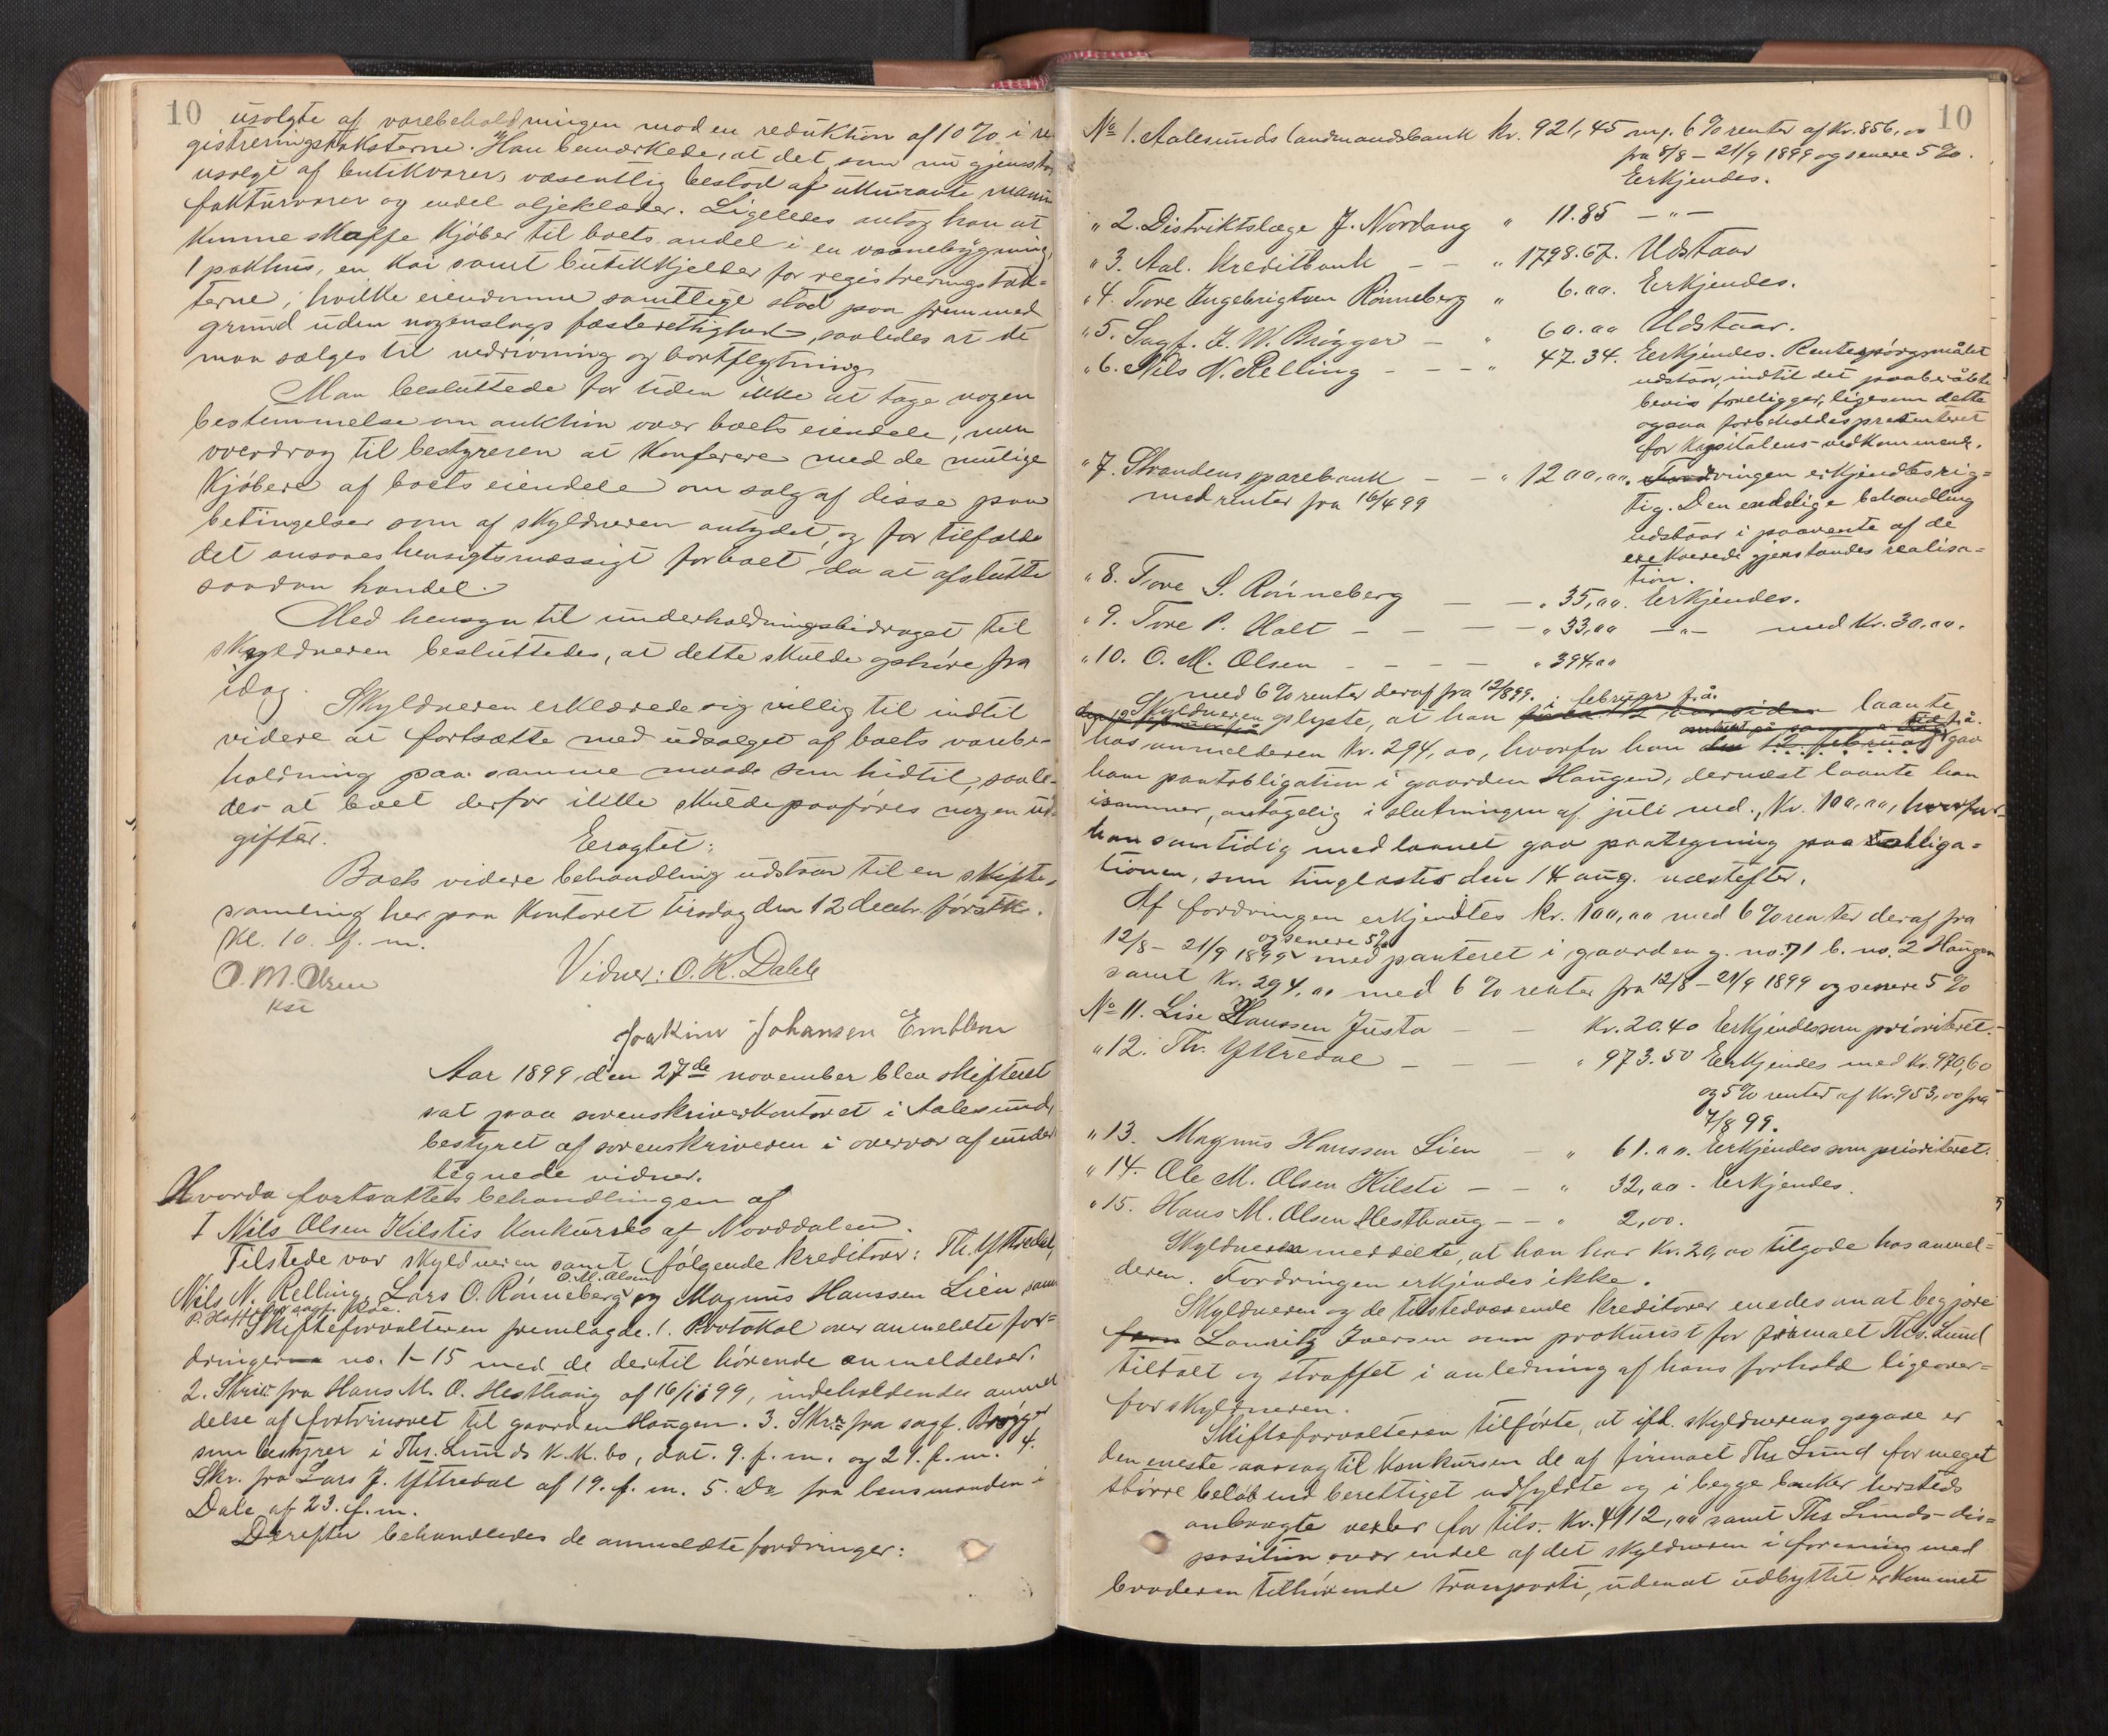 10
usolgte af varebeholdningen mod en reduktion af 10% i re-
gistreringstaksterne. Han bemærkede, at det, som nu gjenstod
usolgt af butikvarer, væsentlig bestod af ukurante manu-
fakturvarer og endel oljeklæder. Ligeledes antog han at
kunne skaffe kjøber til boets andel i en vaanebygning,
1 pakhus, en kai samt butikkjelder for registreringstak-
terne, hvilke eiendomme samtlige stod paa fremmed
grund uden nogenslags fæsterettighed, saaledes at de
maa sælges til nedrivning og bortflytning.
Man besluttede for tiden ikke at tage nogen
bestemmelse om auktion over boets eiendele, men
overdrog til bestyreren at konferere med de mulige
kjøbere af boets eiendele om salg af disse paa
betingelser som af skyldneren antydet, og for tilfælde
det ansaaes hensigtsmæssigt for boet da at afslutte
saadan handel.
Med hensyn til underholdningsbidraget til
skyldneren besluttedes, at dette skulde ophøre fra
idag.
Skyldneren erklærede sig villig til indtil
videre at fortsætte med udsalget af boets varebe-
holdning paa samme maade som hidtil, saale-
des at boet derfor ikke skulde paaføres nogen ud-
gifter.
Eragtet:
Boets videre behandling udstaar til en skifte-
samling her paa kontoret tirsdag den 12 decbr. førstk.
kl. 10 f. m.
O. M. Olsen
kst
Vidner: O. K. Dahle
Joakim Johansen Emblem
Aar 1899 den 27de november blev skifteret
sat paa sorenskriverkontoret i Aalesund,
bestyret af sorenskriveren i overvær af under-
tegnede vidner.
Hvorda fortsattes behandlingen af
I Nils Olsen Kilstis konkursbo af Norddalen.
Tilstede var skyldneren samt følgende kreditorer: Th. Yttredal,
O. M. Olsen
Nils N. Relling, Lars O. Rønneberg og Magnus Hanssen Lien, samt
P. Holt
Skifteforvalteren fremlagde 1. Protokol over anmeldte for-
dringer no. 1-15 med de dertil hørende anmeldelser.
2. Skriv. fra Hans M. O. Hesthaug af 16/11 99, indeholdendes anmel
delse af fortrinsret til gaarden Haugen. 3. Skr. fra sagf. Brøgger
som bestyrer i Ths. Lunds k.k.bo, dat. 9. f. m. og 29. f. m. 4.
Skr. fra Lars J. Yttredal af 19. f. m. 5. Do fra lensmanden i
Dale af 23. f. m.
Derefter behandledes de anmeldte fordringer:
10
No 1. Aalesunds landmandsbank kr. 921,45 m. 6% renter af kr. 856,00
fra 8/8 - 21/9 1899 og senere 5%.
Erkjendes.
" 2. Distriktslæge J. Nordang " 11.85 - " -
" 3. Aal. kreditbank - - " 1798.67. Udstaar
" 4. Tore Ingebrigtsen Rønneberg " 6.00. Erkjendes.
" 5. Sagf. J. W. Brøgger - " 60.00 Udstaar.
" 6. Nils N. Relling - - - " 47.34. Erkjendes. Rentespørgsmålet
udstaar, indtil det paaberåbte
bevis foreligger, ligesom dette
ogsaa forbeholdes præsenteret
for kapitalens vedkommende.
" 7. Strandens sparebank - - " 1200,00. Fordringen erkjendtes rig-
med renter fra 16/4 99
tig. Den endelige behandling
udstaar i paavente af de
exekverede gjenstandes realisa-
tion.
" 8. Tore S. Rønneberg - - " 35,00. Erkjendes.
" 9. Tore P. Holt - - - - " 33,00 - " - med kr. 30,00.
" 10. O. M. Olsen - - - - " 394,00
med 6% renter deraf fra 12/8 99.
i februar f.å.
Skyldneren oplyste, at han laante
hos anmelderen kr. 294,00, hvorfor han den 12 februar gav
ham pantobligation i gaarden Haugen, dernæst laante han
isommer, antagelig i slutningen af juli md., kr. 100,00, hvorfor
han samtidig med laanet gav paategning paa obliga-
tionen, som tinglæstes den 14 aug. næstefter.
Af fordringen erkjendtes kr. 100,00 med 6% renter deraf fra
og senere 5%
12/8 - 21/9 1899 med panteret i gaarden g. no. 71 b. no. 2 Haugen
samt kr. 294.00 med 6% renter fra 12/8 - 21/9 1899 og senere 5%
No 11. Lise Hanssen Justa - - kr. 20.40 Erkjendes som prioriteret.
" 12. Th. Yttredal - - - " 973.50 Erkjendes med kr. 970,60
og 5% renter af kr. 953,00 fra
7/8 99.
" 13. Magnus Hanssen Lien - " 61.00. Erkjendes som prioriteret.
" 14. Ole M. Olsen Kilsti - - " 32,00 - Erkjendes.
" 15. Hans M. Olsen Hesthaug - - " 2,00.
Skyldneren meddelte, at han har kr. 20,00 tilgode hos anmel-
deren. Fordringen erkjendes ikke.
Skyldneren og de tilstedeværende kreditorer enedes om at begjøre
Lauritz Iversen som prokurist for firmaet Ths. Lund
tiltalt og straffet i anledning af hans forhold ligeover-
for skyldneren.
Skifteforvalteren tilførte, at ifl. skyldnerens opgave er
den eneste aarsag til konkursen de af firmaet Ths Lund for meget
større beløb end berettiget udfyldte og i begge banker hersteds
anbragte vexler for tils. kr. 4112,00 samt Ths Lunds dis-
position over endel af det skyldneren i forening med
broderen tilhørende tranparti, uden at udbyttet er kommet